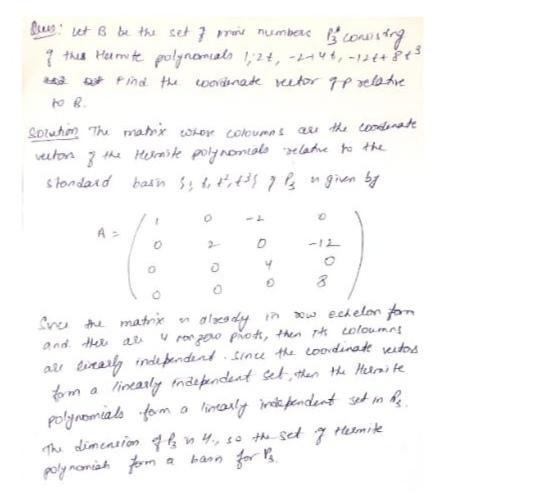 Ques: Let B be the set of prime numbers P3 consisting
of this Hermite polynomials 1, 2t, -2+4t, -12t+8t3
Find the coordenate vector of p relative
to B.
Solution The matrix whose coloumns are the coordenate
vectors of the Hermite polynomials relative to the
standard basis {1, t, t2, t3} of P3 is given by
A = ( 1 0 -2 0
0 2 0 -12
0 0 4 0
0 0 0 8 )
Since the matrix is already in row echelon form
and there are 4 nonzero pivots, then its coloumns
are linearly independent. Since the coordinate vectors
form a linearly independent set, then the Hermite
polynomials form a linearly independent set in P3.
The dimension of P3 is 4, so the set of Hermite
polynomials form a basis for P3.